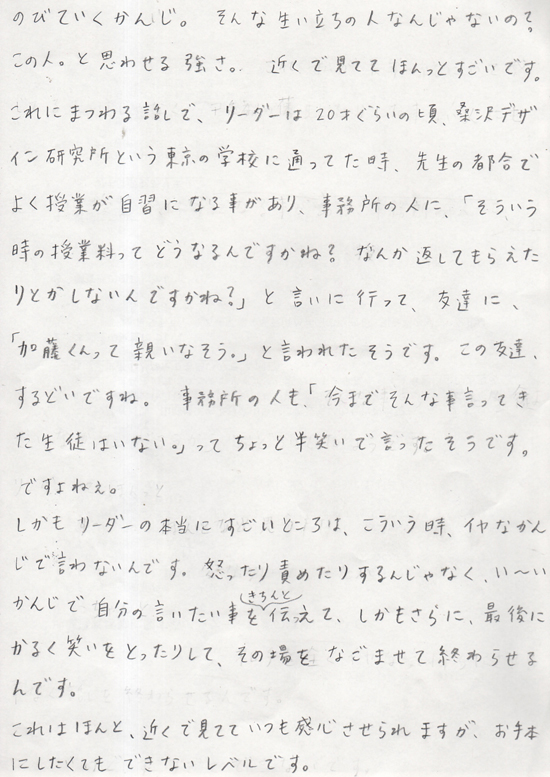 のびていくかんじ。 そんな生い立ちの人なんじゃないの?
この人。と思わせる強さ。 近くで見てて ほんっとすごいです。
これにまつわる話しで、リーダーは20才ぐらいの頃、桑沢デザ
イン研究所という東京の学校に通ってた時、先生の都合で
よく授業が自習になる事があり、事務所の人に、「そういう
時の授業料って どうなるんですかね? なんか返してもらえた
りとかしないんですかね?」と言いに行って、友達に、
「加藤くんって 親いなそう。」と言われたそうです。この友達、
するどいですね。 事務所の人も、「今までそんな事言ってき
た生徒はいない。」ってちょっと半笑いで言ったそうです。
ですよねぇ。
しかもリーダーの本当にすごいところは、こういう時、イヤなかん
じで言わないんです。怒ったり責めたりするんじゃなく、い〜い
かんじで自分の言いたい事をきちんと伝えて、しかもさらに、最後に
かるく笑いをとったりして、その場をなごませて終わらせる
んです。
これはほんと、近くで見てていつも感心させられますが、お手本
にしたくてもできないレベルです。